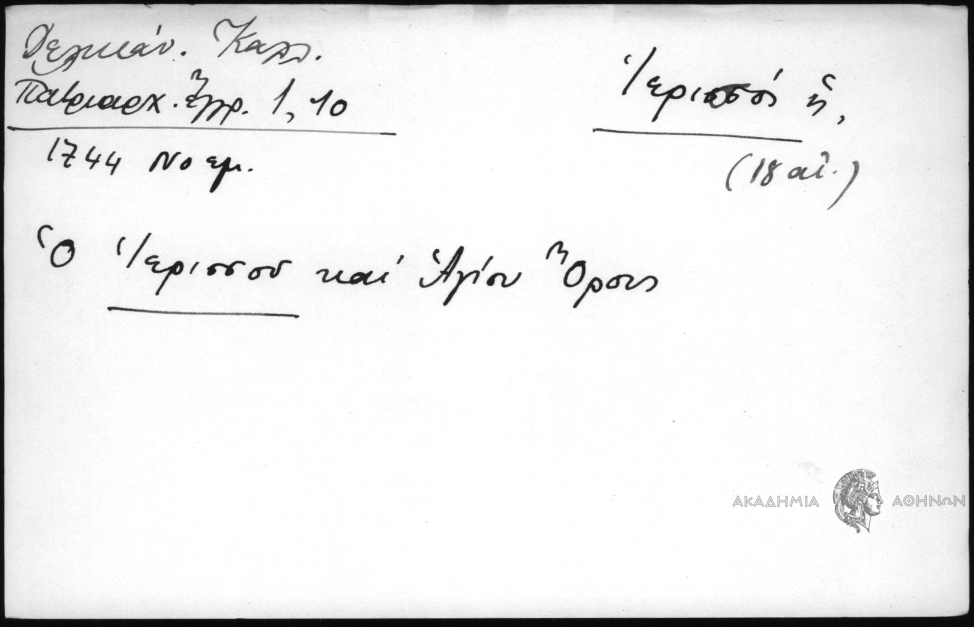 Δελικάν. Καλλ.
Πατριαρχ. Ἔγγρ. 1, 10
1744 Νοεμ.
Ἱερισσός ἡ,
(18 αἰ.)
Ὁ Ἱερισσοῦ καί Ἁγίου Ὄρους
ΑΚΑΔΗΜΙΑ ΑΘΗΝΩΝ